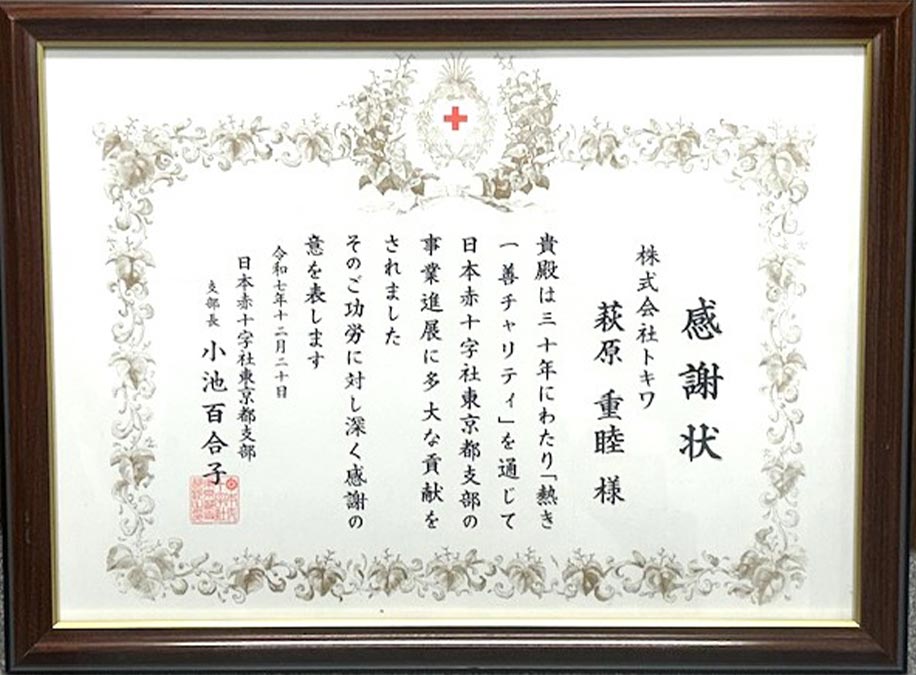 感謝状
株式会社トキワ
萩原 重睦 様
貴殿は三十年にわたり「熱き
一善チャリティ」を通じて
日本赤十字社東京都支部の
事業進展に多大な貢献を
されました
そのご功労に対し深く感謝の
意を表します
令和七年十二月二十日
日本赤十字社東京都支部
支部長 小池百合子